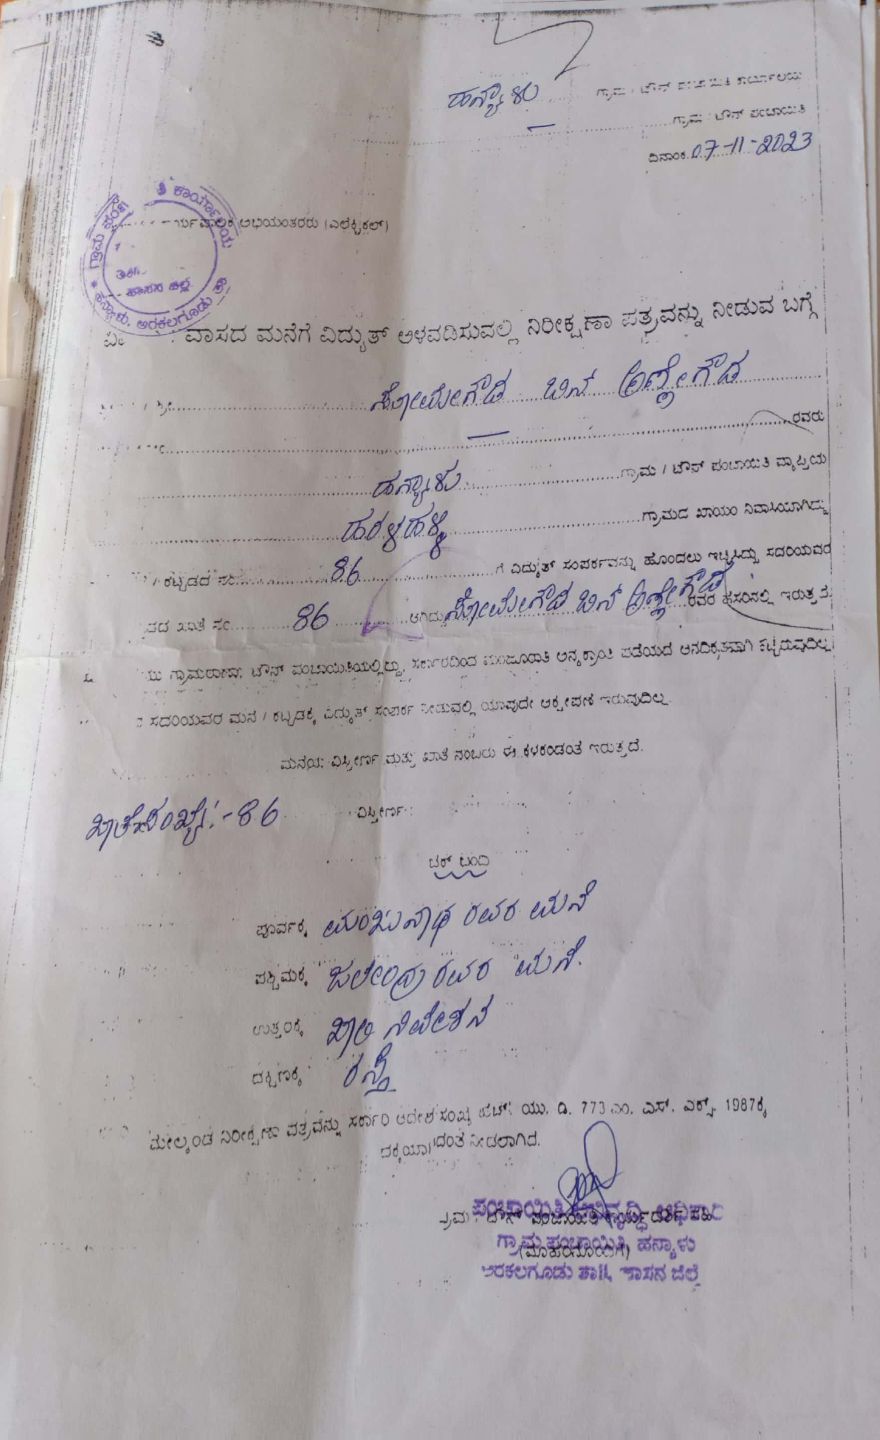 ಹನ್ಯಾಳು ಗ್ರಾಮ / ಟೌನ್ ಪಂಚಾಯಿತಿ ಕಾರ್ಯಾಲಯ
ಗ್ರಾಮ / ಟೌನ್ ಪಂಚಾಯಿತಿ
ದಿನಾಂಕ 07-11-2023
ಗ್ರಾಮ ಕಾರ್ಯಾಲಯ
ಹಾಸನ ಜಿಲ್ಲೆ
ಹನ್ಯಾಳು, ಅರಕಲಗೂಡು ತಾ
ಅಭಿಯಂತರರು (ಎಲೆಕ್ಟ್ರಿಕಲ್)
ವಾಸದ ಮನೆಗೆ ವಿದ್ಯುತ್ ಅಳವಡಿಸುವಲ್ಲಿ ನಿರೀಕ್ಷಣಾ ಪತ್ರವನ್ನು ನೀಡುವ ಬಗ್ಗೆ
ಶ್ರೀ ಸೋಮೇಗೌಡ ಬಿನ್ ಅಣ್ಣೇಗೌಡ
ರವರು
ಹನ್ಯಾಳು ಗ್ರಾಮ / ಟೌನ್ ಪಂಚಾಯಿತಿ ವ್ಯಾಪ್ತಿಯ
ಹರಳಹಳ್ಳಿ ಗ್ರಾಮದ ಖಾಯಂ ನಿವಾಸಿಯಾಗಿದ್ದು
/ ಕಟ್ಟಡದ ನಂ 86 ಗೆ ವಿದ್ಯುತ್ ಸಂಪರ್ಕವನ್ನು ಹೊಂದಲು ಇಚ್ಛಿಸಿದ್ದು ಸದರಿಯವರ
ಖಾತೆ ನಂ 86 ಆಗಿದ್ದು ಸೋಮೇಗೌಡ ಬಿನ್ ಅಣ್ಣೇಗೌಡ ರವರ ಹೆಸರಿನಲ್ಲಿ ಇರುತ್ತದೆ
ಟೌನ್ ಪಂಚಾಯಿತಿಯಲ್ಲಿದ್ದು, ಸರ್ಕಾರದಿಂದ ಮಂಜೂರಾತಿ ಪಡೆಯದೆ ಅನಧಿಕೃತವಾಗಿ ಕಟ್ಟಿರುವುದಿಲ್ಲ
ಸದರಿಯವರ ಮನೆ / ಕಟ್ಟಡಕ್ಕೆ ವಿದ್ಯುತ್ ಸಂಪರ್ಕ ನೀಡುವಲ್ಲಿ ಯಾವುದೇ ಆಕ್ಷೇಪಣೆ ಇರುವುದಿಲ್ಲ
ಮನೆಯ ವಿಸ್ತೀರ್ಣ ಮತ್ತು ಖಾತೆ ನಂಬರು ಈ ಕೆಳಕಂಡಂತೆ ಇರುತ್ತದೆ.
ಖಾತೆಸಂಖ್ಯೆ:-86 ವಿಸ್ತೀರ್ಣ:
ಚಕ್ ಬಂದಿ
ಪೂರ್ವಕ್ಕೆ ಮಂಜುನಾಥ ರವರ ಮನೆ
ಪಶ್ಚಿಮಕ್ಕೆ ರವರ ಮನೆ.
ಉತ್ತರಕ್ಕೆ ಖಾಲಿ ನಿವೇಶನ
ದಕ್ಷಿಣಕ್ಕೆ ರಸ್ತೆ
ಮೇಲ್ಕಂಡ ನಿರೀಕ್ಷಣಾ ಪತ್ರವನ್ನು ಸರ್ಕಾರಿ ಆದೇಶ ಸಂಖ್ಯೆ ಹೆಚ್. ಯು. ಡಿ. 773 ಎಂ. ಎಸ್. ಎಕ್ಸ್. 1987ಕ್ಕೆ
ನೀಡಲಾಗಿದೆ.
ಪಂಚಾಯಿತಿ ಅಭಿವೃದ್ಧಿ ಅಧಿಕಾರಿ
ಟೌನ್ ಪಂಚಾಯಿತಿ ಕಾರ್ಯದರ್ಶಿ ಸಹಿ
ಗ್ರಾಮ ಪಂಚಾಯಿತಿ, ಹನ್ಯಾಳು
(ಮೊಹರಿನೊಂದಿಗೆ)
ಅರಕಲಗೂಡು ತಾ||, ಹಾಸನ ಜಿಲ್ಲೆ